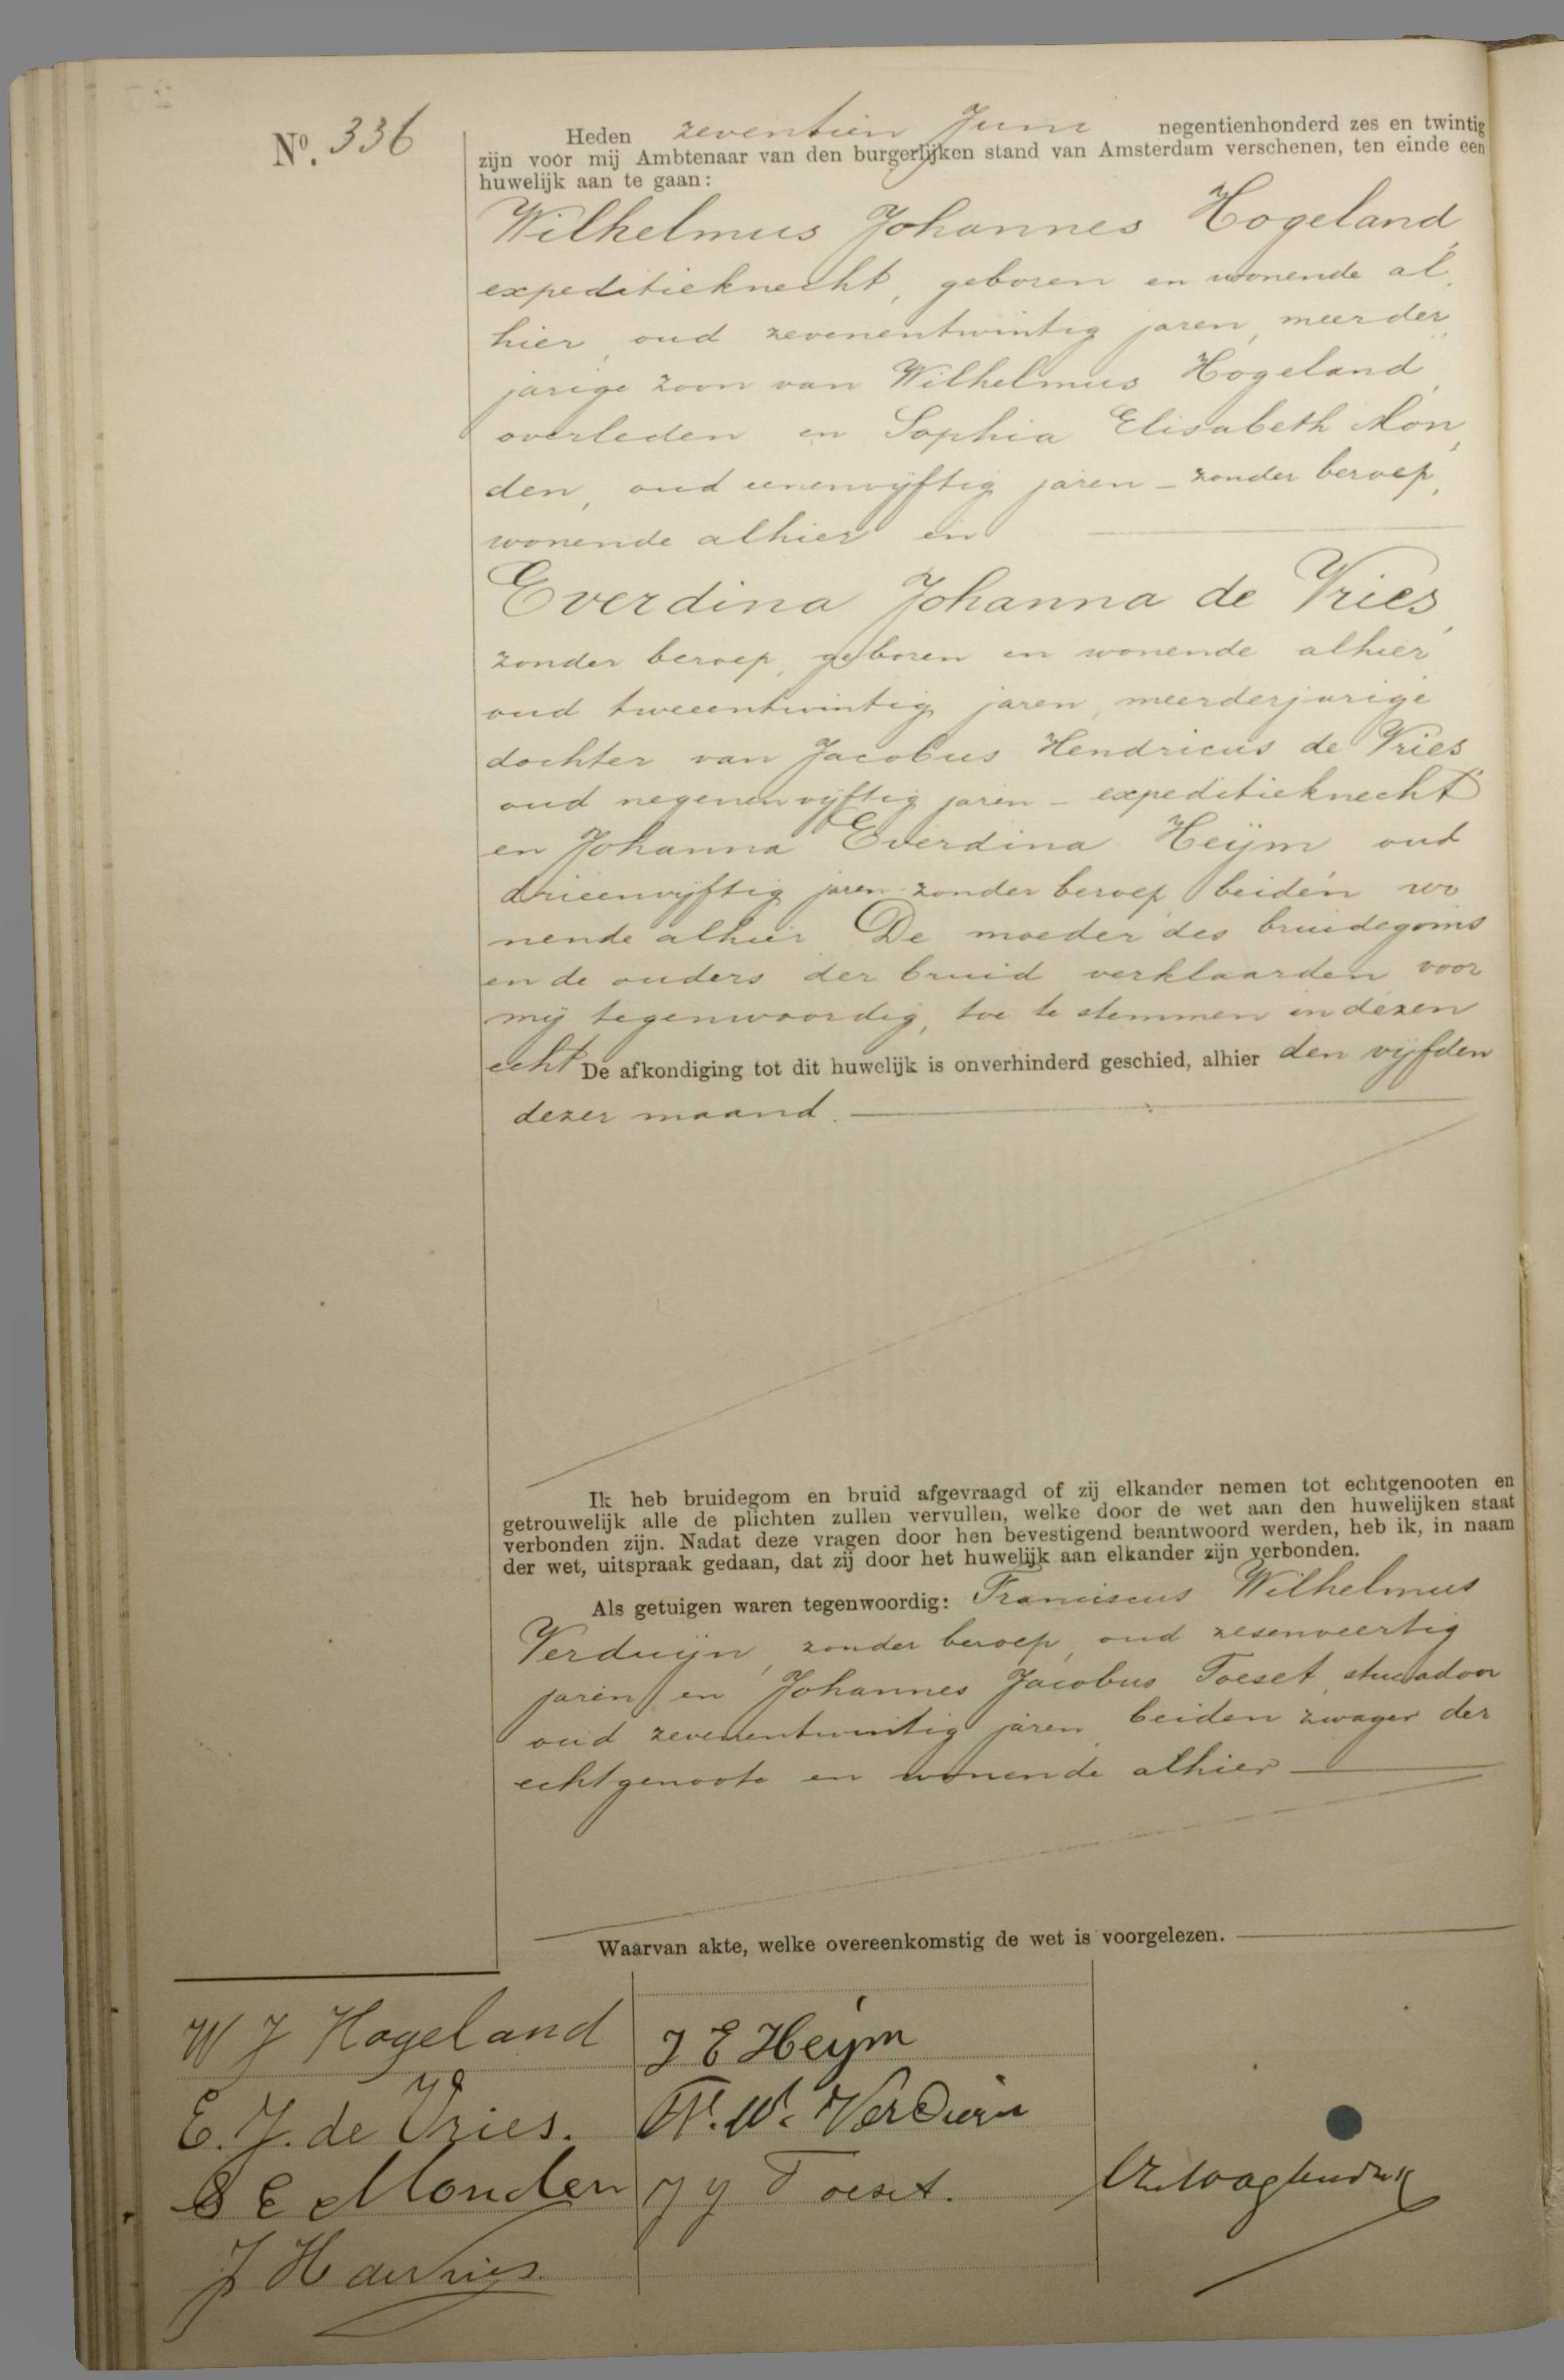 Nº. 336
Heden zeventien Juni negentienhonderd zes en twintig
zijn voor mij Ambtenaar van den burgerlijken stand van Amsterdam verschenen, ten einde een
huwelijk aan te gaan:
Wilhelmus Johannes Hogeland,
expeditieknecht, geboren en wonende al„
hier, oud zevenentwintig jaren, meerder„
jarige zoon van Wilhelmus Hogeland,
overleden en Sophia Elisabeth Mon„
den, oud eenenvijftig jaren - zonder beroep,
wonende alhier en
Everdina Johanna de Vries,
zonder beroep, geboren en wonende alhier
oud tweeentwintig jaren, meerderjarige
dochter van Jacobus Hendricus de Vries
oud negenenvijftig jaren - expeditieknecht
en Johanna Everdina Heijm oud
drieenvijftig jaren zonder beroep, beiden wo
nende alhier De moeder des bruidegoms
en de ouders der bruid verklaarden voor
mij tegenwoordig, toe te stemmen in dezen
echt De afkondiging tot dit huwelijk is onverhinderd geschied, alhier den vijfden
dezer maand.
Ik heb bruidegom en bruid afgevraagd of zij elkander nemen tot echtgenooten en
getrouwelijk alle de plichten zullen vervullen, welke door de wet aan den huwelijken staat
verbonden zijn. Nadat deze vragen door hen bevestigend beantwoord werden, heb ik, in naam
der wet, uitspraak gedaan, dat zij door het huwelijk aan elkander zijn verbonden.
Als getuigen waren tegenwoordig: Franciscus Wilhelmus
Verduijn, zonder beroep, oud zesenveertig
jaren en Johannes Jacobus Toeset, stucadoor
oud zevenentwintig jaren, beiden zwager der
echtgenoote en wonende alhier
Waarvan akte, welke overeenkomstig de wet is voorgelezen.
W J Hogeland
E. J. de Vries.
S E Monden
J H de Vries.
J E Heijm
F. W. Verduin
J J Toeset.